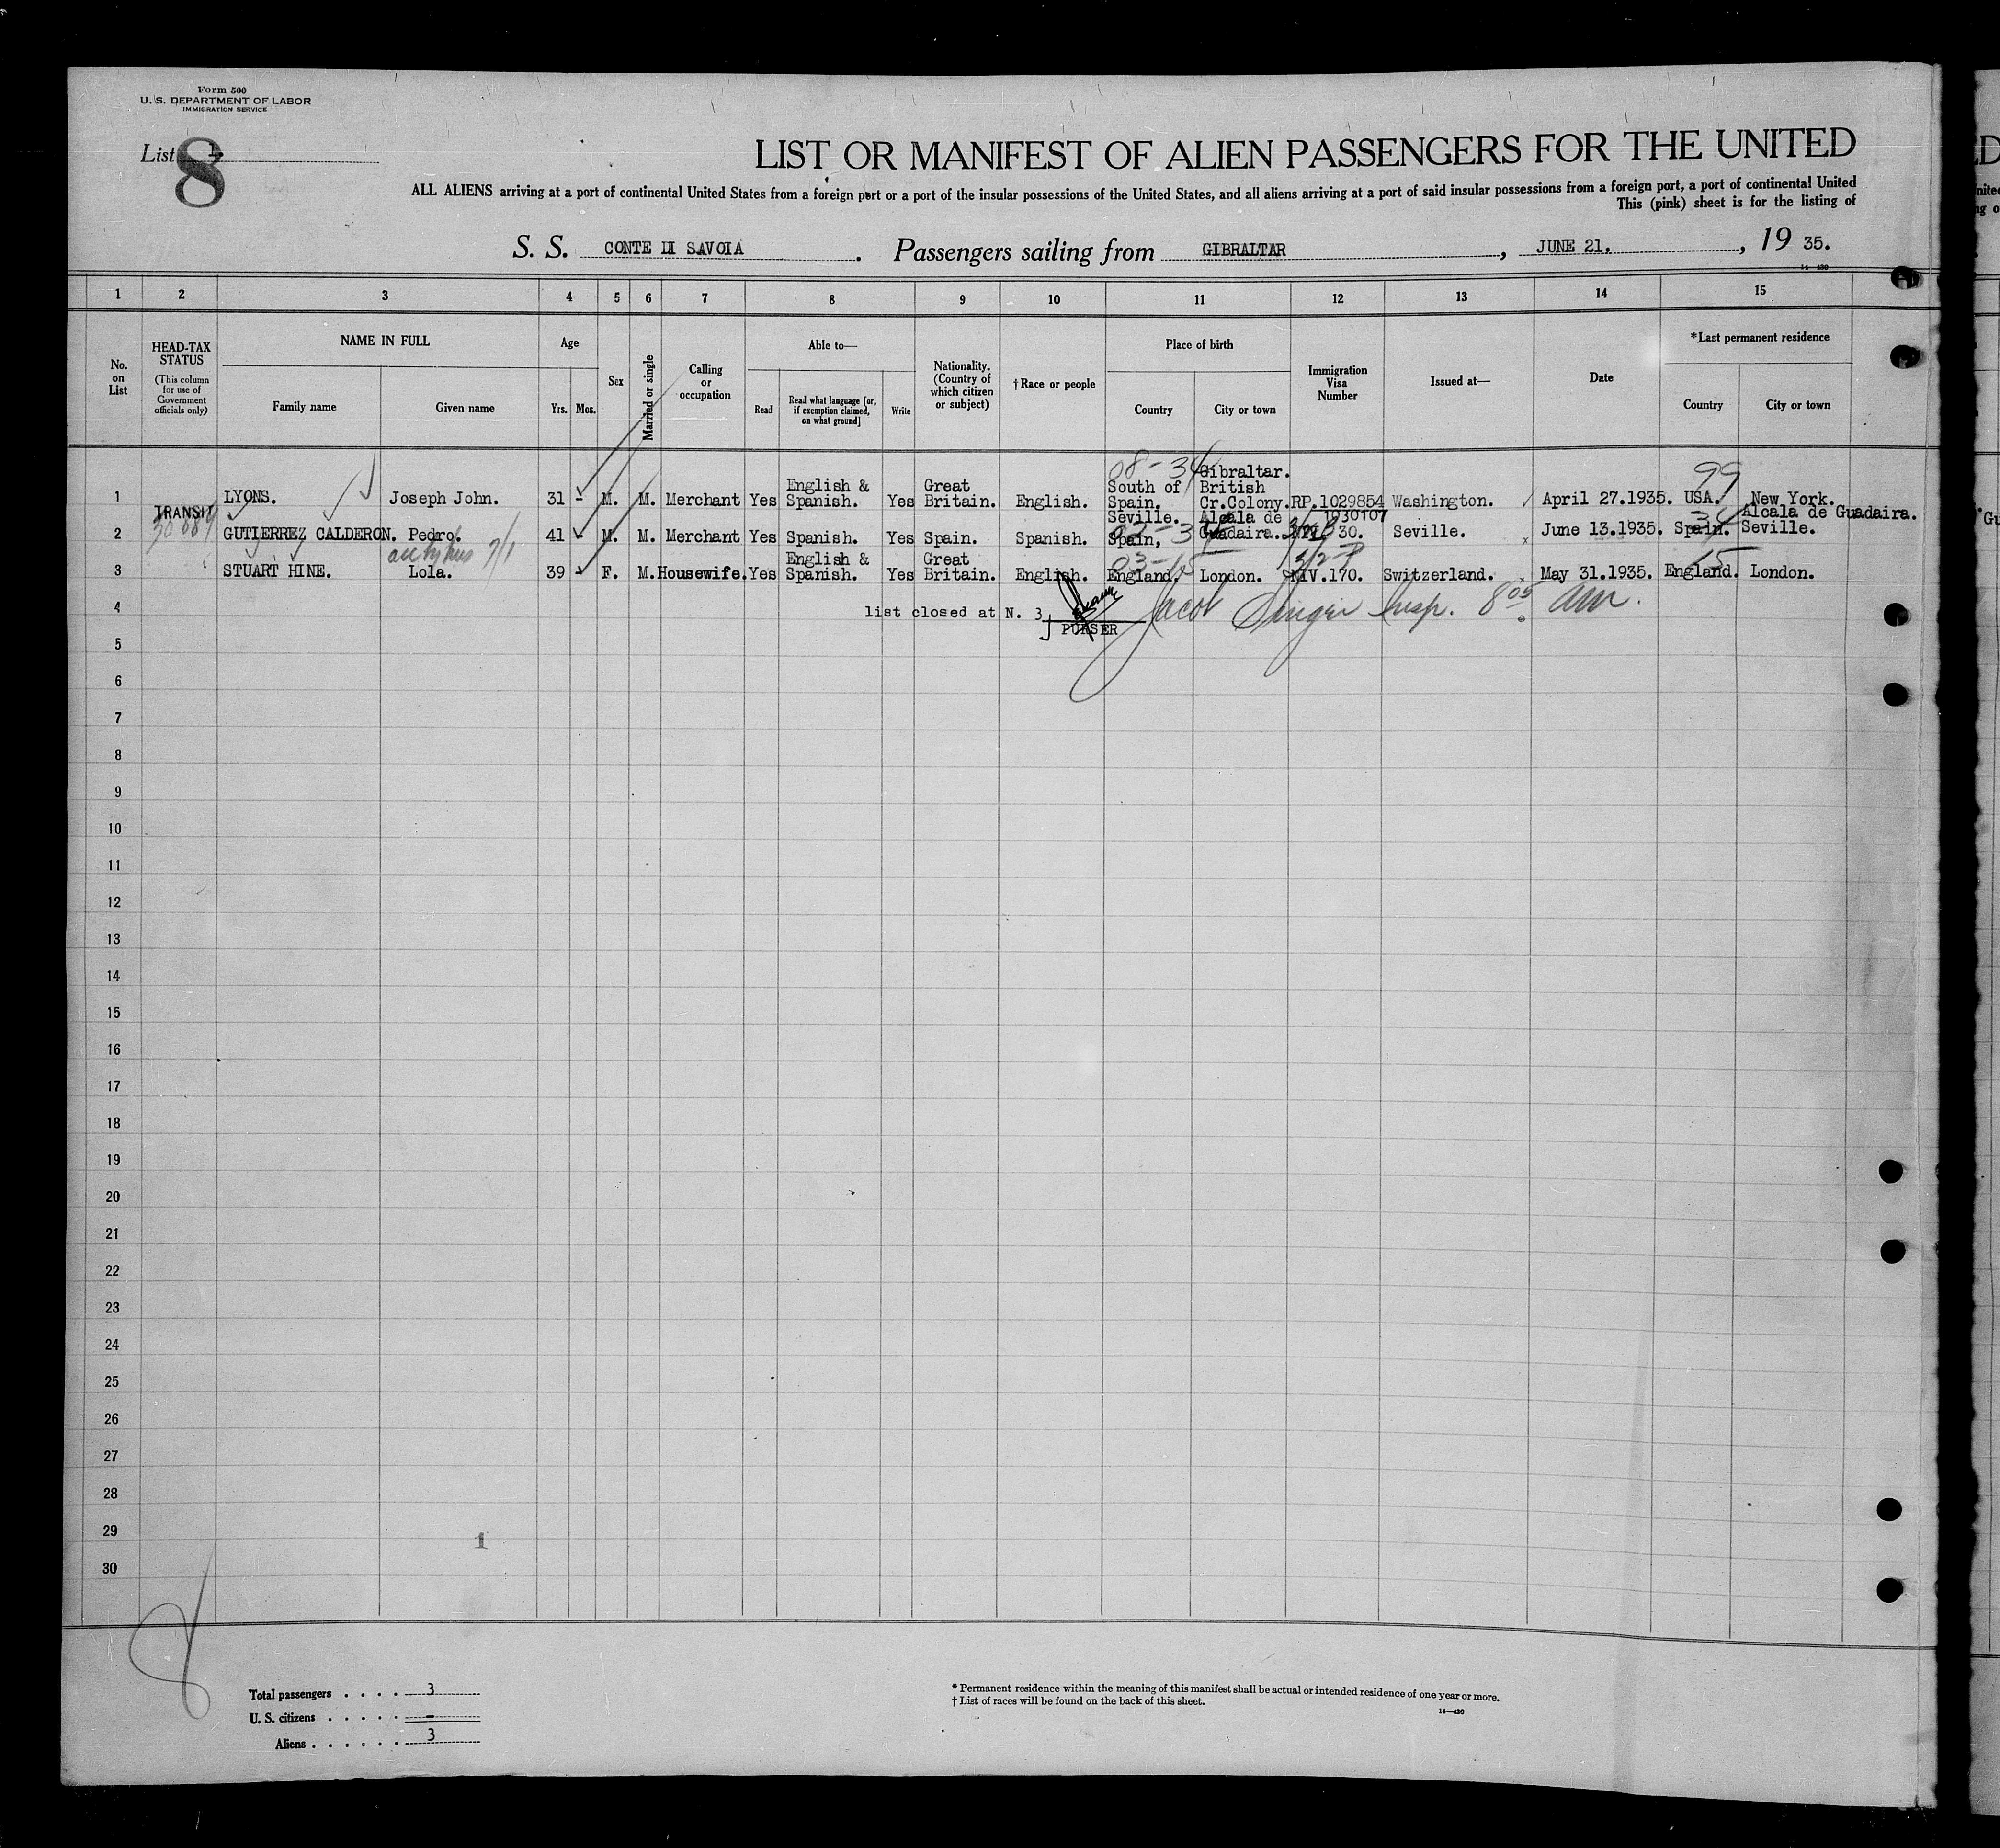 Form 500
U. S. DEPARTMENT OF LABOR
IMMIGRATION SERVICE
List 8
LIST OR MANIFEST OF ALIEN PASSENGERS FOR THE UNITED
ALL ALIENS arriving at a port of continental United States from a foreign port or a port of the insular possessions of the United States, and all aliens arriving at a port of said insular possessions from a foreign port, a port of continental United
This (pink) sheet is for the listing of
S. S. CONTE DI SAVOIA . Passengers sailing from GIBRALTAR , JUNE 21. , 19 35.
14—430
1 2 3 4 5 6 7 8 9 10 11 12 13 14 15
No. on List
HEAD-TAX STATUS
(This column for use of Government officials only)
NAME IN FULL
Family name Given name
Age
Yrs. Mos.
Sex
Married or single
Calling or occupation
Able to—
Read Read what language [or, if exemption claimed, on what ground] Write
Nationality. (Country of which citizen or subject)
†Race or people
Place of birth
Country City or town
Immigration Visa Number
Issued at—
Date
*Last permanent residence
Country City or town
1 LYONS. Joseph John. 31 - M. M. Merchant Yes English & Spanish. Yes Great Britain. English. 08-34 South of Spain. Gibraltar. British Cr.Colony. RP.1029854 Washington. April 27.1935. 99 USA. New York.
TRANSIT
2 GUTIERREZ CALDERON. Pedro. 41 - M. M. Merchant Yes Spanish. Yes Spain. Spanish. Seville. Spain, Alcala de Guadaira. 1030107 30. Seville. June 13.1935. Spain. Alcala de Guadaira. Seville.
3 STUART HINE. Lola. 39 - F. M. Housewife. Yes English & Spanish. Yes Great Britain. English. 03-15 England. London. NIV.170. Switzerland. May 31.1935. 15 England. London.
4 list closed at N. 3 Jacob Singer Insp. 8 05 am.
PURSER
5
6
7
8
9
10
11
12
13
14
15
16
17
18
19
20
21
22
23
24
25
26
27
28
29
1
30
8
Total passengers . . . . 3
U. S. citizens . . . . . -
Aliens . . . . . . 3
* Permanent residence within the meaning of this manifest shall be actual or intended residence of one year or more.
† List of races will be found on the back of this sheet.
14—430